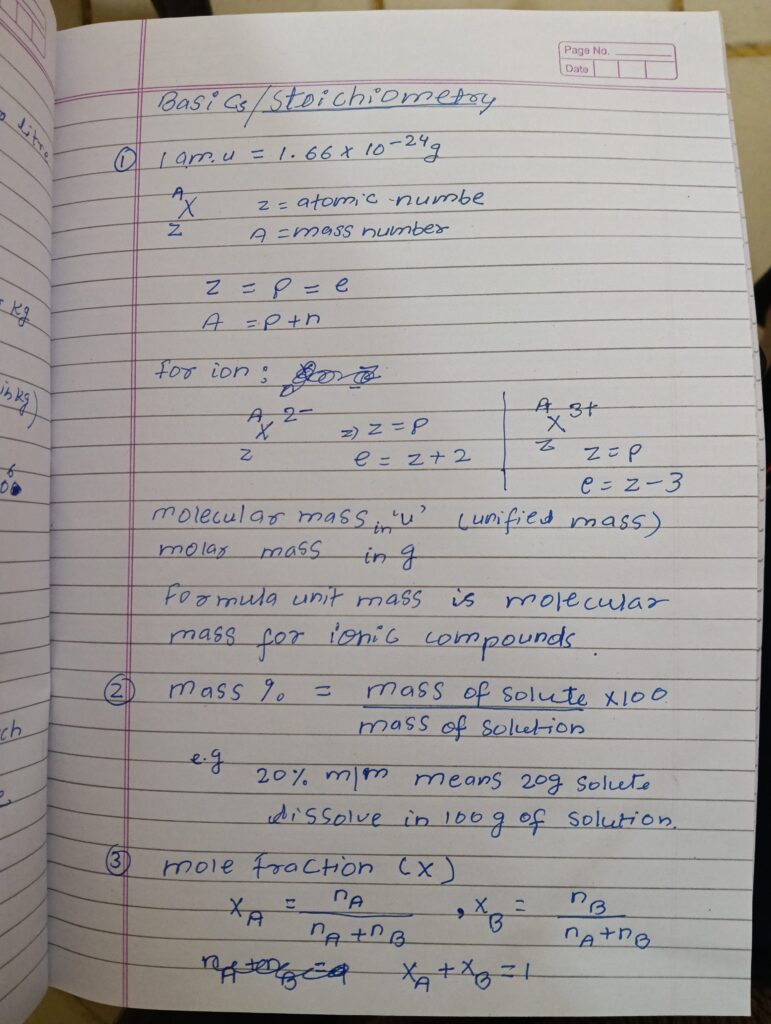 Page No.
Date
Basics/Stoichiometry
① 1 am.u = 1.66 x 10⁻²⁴g
ᴬX
Z
z = atomic numbe
A = mass number
Z = P = e
A = P + n
for ion :
A X 2-
Z
=) Z = P
e = Z + 2
A X 3+
Z
Z = P
e = Z - 3
molecular mass in 'u' (unified mass)
molar mass in g
Formula unit mass is molecular
mass for ionic compounds.
② mass % = mass of solute x100
mass of solution
e.g
20% m/m means 20g solute
dissolve in 100 g of solution.
③ mole fraction (X)
X_A = n_A / n_A + n_B , X_B = n_B / n_A + n_B
X_A + X_B = 1
litre
kg
in kg)
6
ch